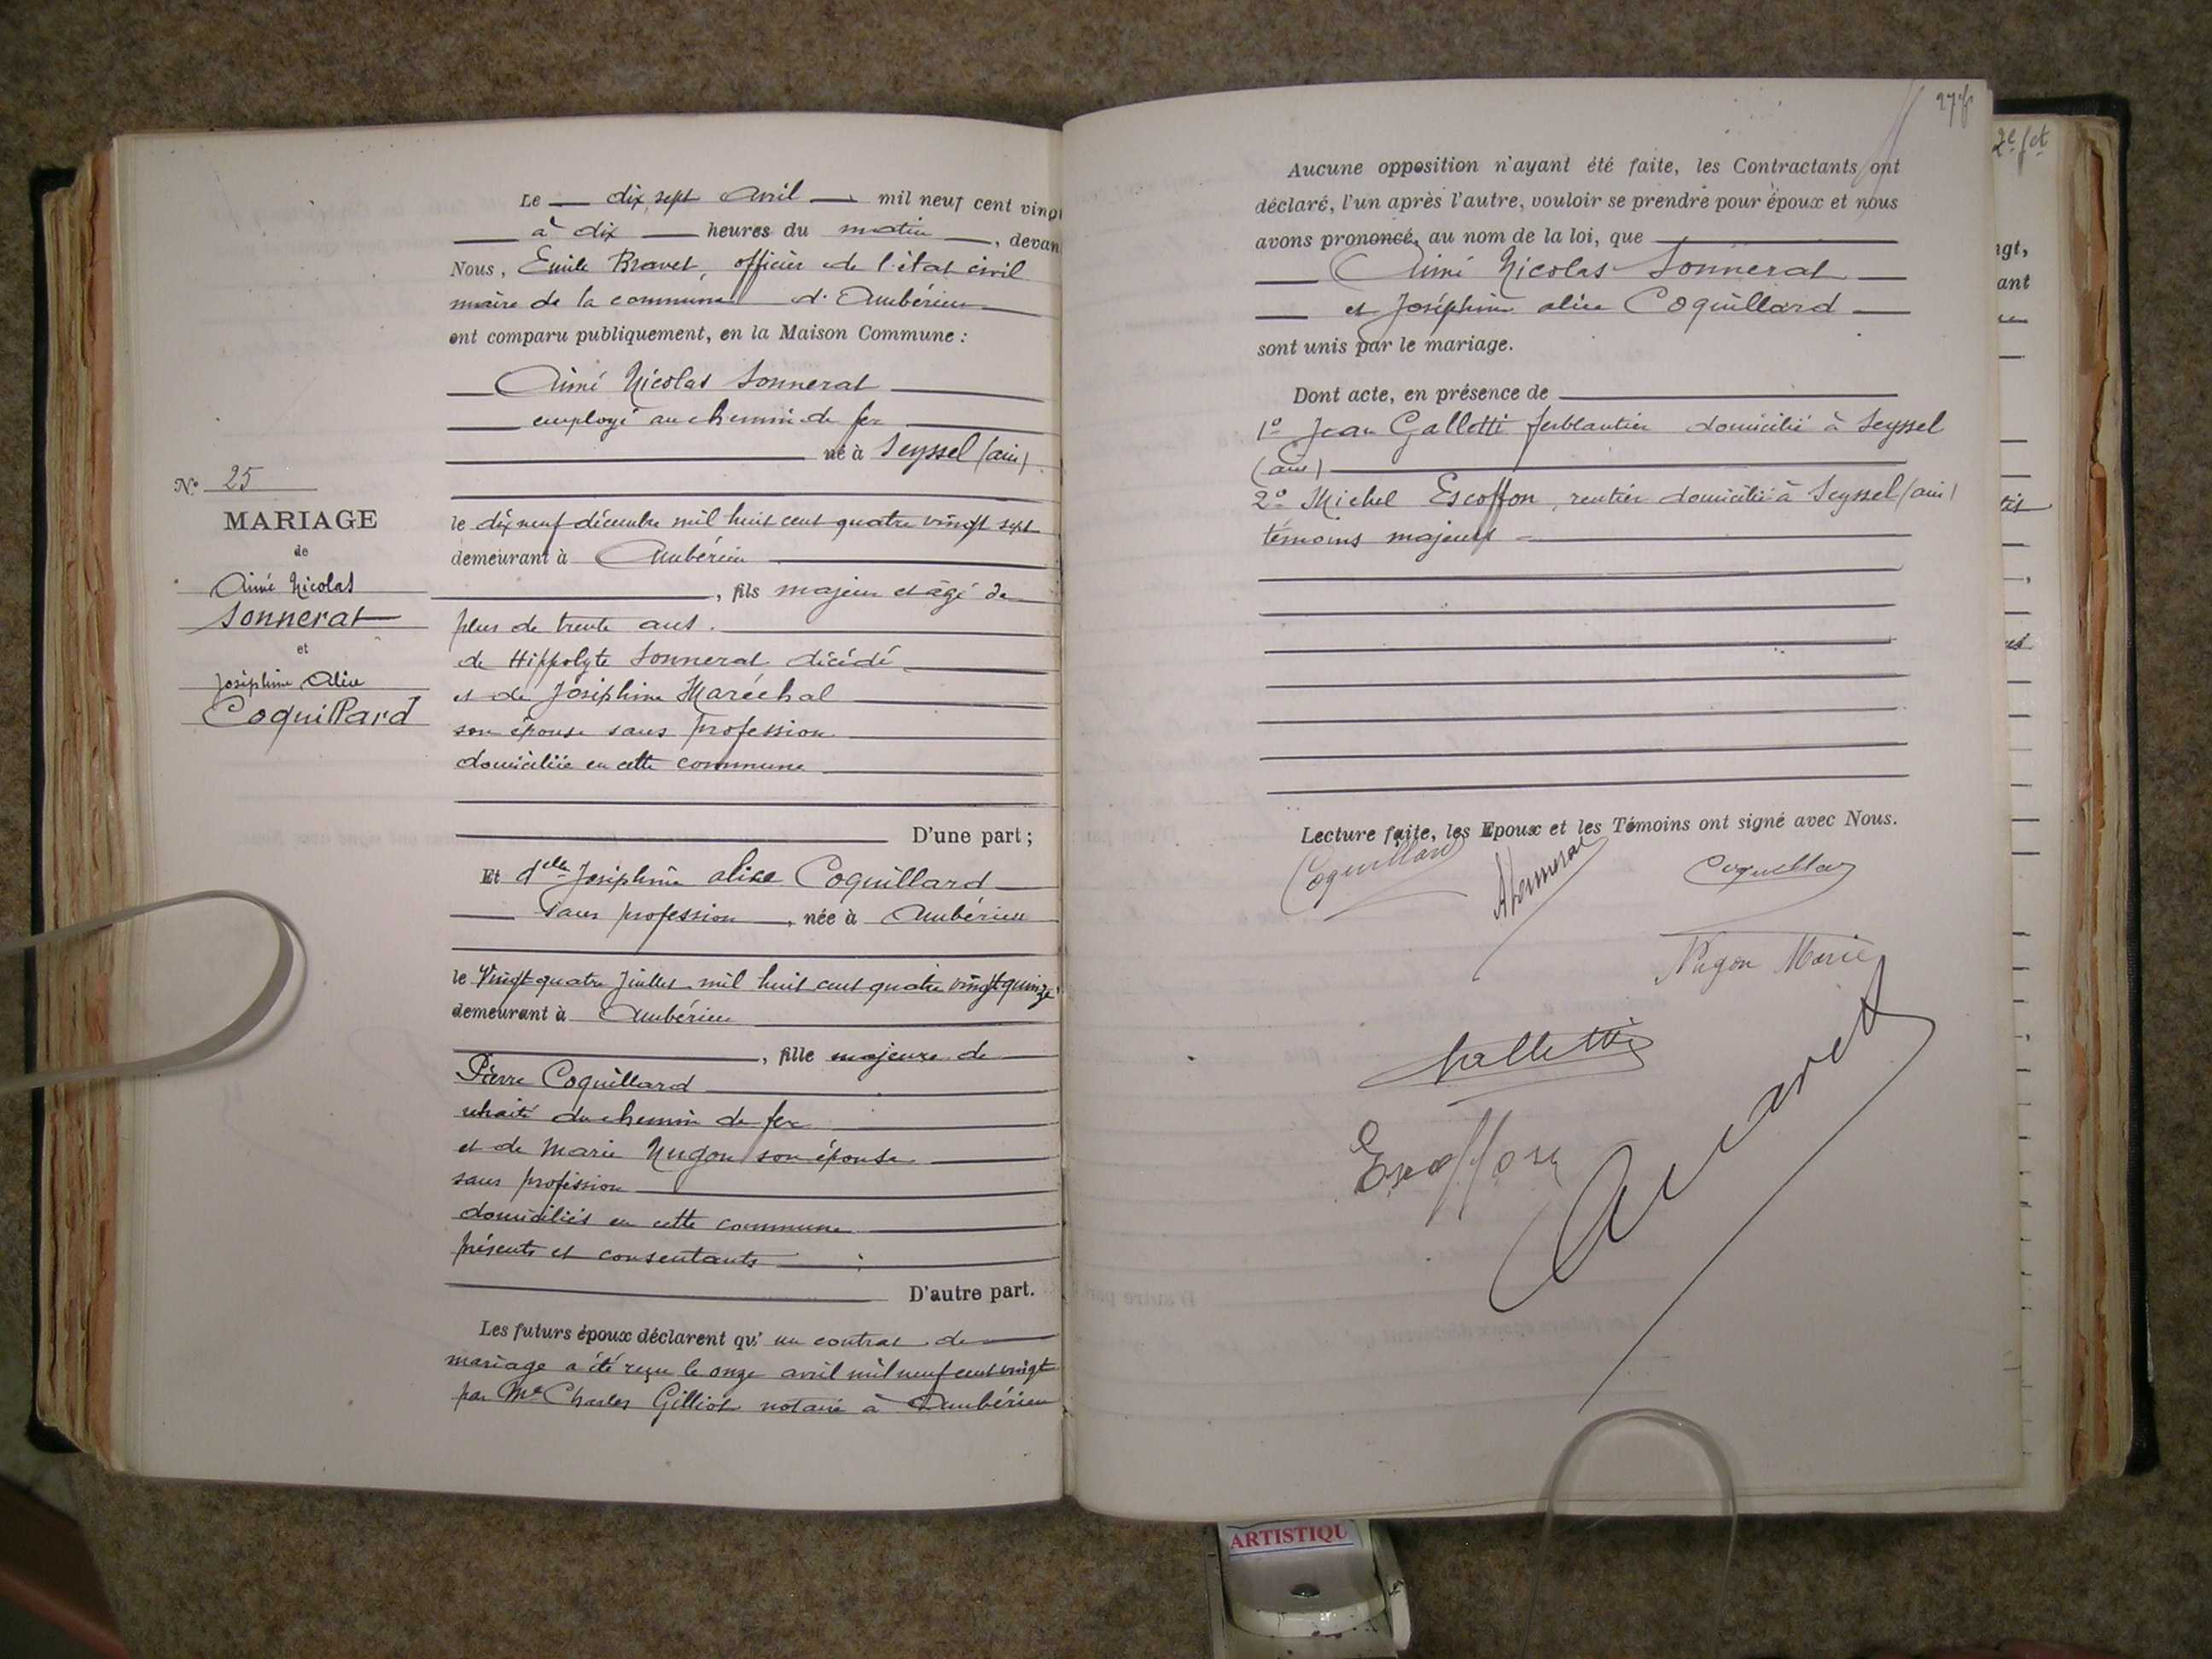 Le dix sept Avril mil neuf cent vingt
à dix heures du matin, devan
Nous, Emile Bravet, officier de l'état civil
maire de la commune d'Ambérieu
ont comparu publiquement, en la Maison Commune :
Aimé Nicolas Sonnerat
employé au chemin de fer
né à Seyssel (ain)
le dix neuf décembre mil huit cent quatre vingt sept
demeurant à Ambérieu
, fils majeur et âgé de
plus de trente ans.
de Hippolyte Sonnerat décédé
et de Joséphine Maréchal
son épouse sans profession
domiciliée en cette commune
D'une part ;
Et delle Joséphine alice Coquillard
sans profession, née à Ambérieu
le Vingt quatre Juillet mil huit cent quatre vingt quinze
demeurant à Ambérieu
, fille majeure de
Pierre Coquillard
retraité du chemin de fer
et de Marie Nugon son épouse
sans profession
domiciliés en cette commune
présents et consentants
D'autre part.
Les futurs époux déclarent qu' un contrat de
mariage a été reçu le onze avril mil neuf cent vingt
par Me Charles Gilliot notaire à Ambérieu
N° 25
MARIAGE
de
Aimé Nicolas
Sonnerat
et
Joséphine Alice
Coquillard
Aucune opposition n'ayant été faite, les Contractants ont
déclaré, l'un après l'autre, vouloir se prendre pour époux et nous
avons prononcé, au nom de la loi, que
Aimé Nicolas Sonnerat
et Joséphine alice Coquillard
sont unis par le mariage.
Dont acte, en présence de
1° Jean Galletti ferblantier domicilié à Seyssel
(ain)
2° Michel Escoffon, rentier domicilié à Seyssel (ain)
témoins majeurs
Lecture faite, les Epoux et les Témoins ont signé avec Nous.
Coquillard
ASonnerat
Coquillard
Nugon Marie
Galletti
Escoffon
2e fct
ngt,
ant
ARTISTIQU